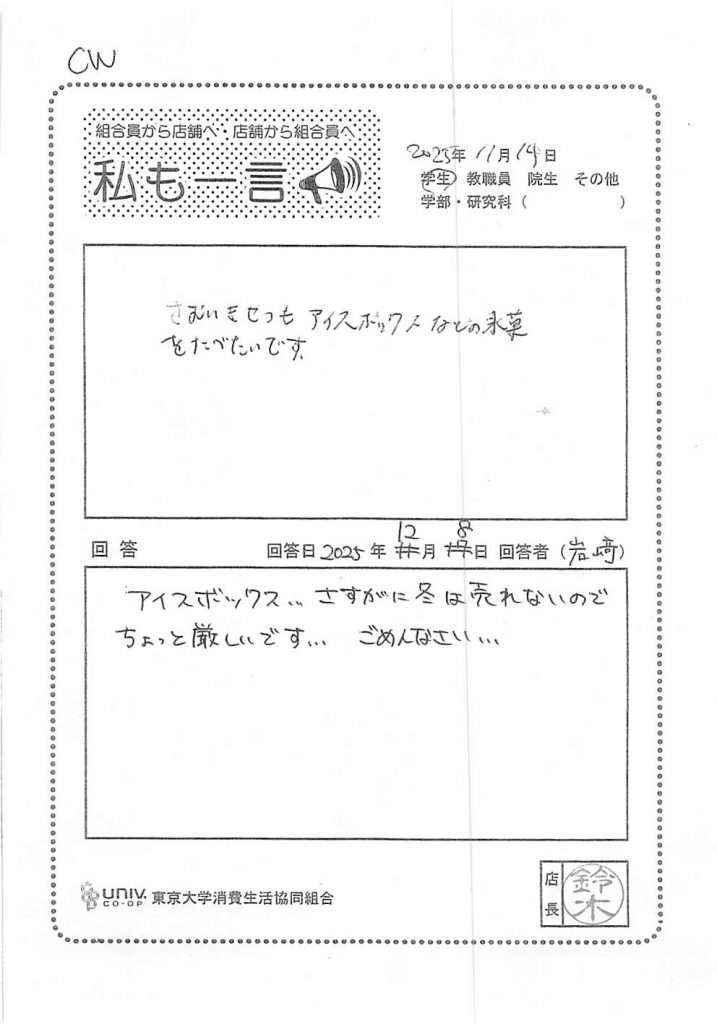 CW
組合員から店舗へ・店舗から組合員へ
私も一言
2025年 11月 14日
学生 教職員 院生 その他
学部・研究科 ( )
さむいきせつも アイスボックスなどの氷菓
をたべたいです。
12 8
回答 回答日 2025 年 月 日 回答者 (岩﨑)
アイスボックス... さすがに冬は売れないので
ちょっと厳しいです... ごめんなさい...
UNIV. CO-OP 東京大学消費生活協同組合
店長 鈴木